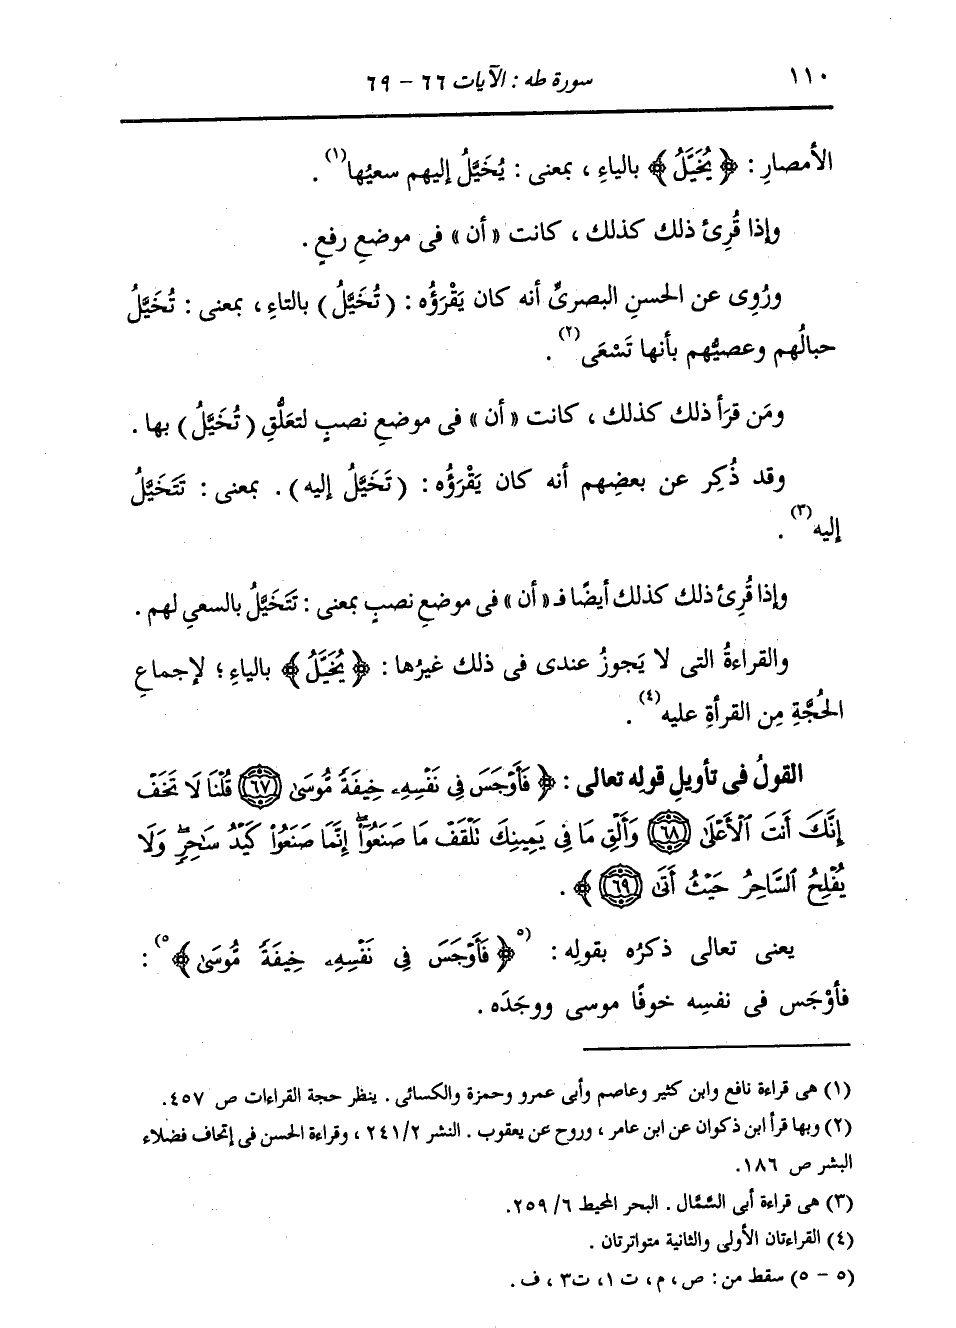 ١١٠ سورة طه : الآيات ٦٦ - ٦٩
الأمصارِ : ﴿ يُخَيَّلُ ﴾ بالياءِ ، بمعنى : يُخَيَّلُ إليهم سعيُها(١) .
وإذا قُرِئ ذلك كذلك ، كانت « أن » فى موضعِ رفعٍ .
ورُوِى عن الحسنِ البصرىِّ أنه كان يَقْرَؤُه : ( تُخَيَّلُ ) بالتاءِ ، بمعنى : تُخَيَّلُ
حبالُهم وعصيُّهم بأنها تَسْعَى(٢) .
ومَن قرَأ ذلك كذلك ، كانت « أن » فى موضعِ نصبٍ لتعَلُّقِ ( تُخَيَّلُ ) بها .
وقد ذُكِر عن بعضِهم أنه كان يَقْرَؤُه : ( تَخَيَّلُ إليه ) . بمعنى : تَتَخَيَّلُ
إليه(٣) .
وإذا قُرِئ ذلك كذلك أيضًا فـ « أن » فى موضعِ نصبٍ بمعنى : تَتَخَيَّلُ بالسعىِ لهم .
والقراءةُ التى لا يَجوزُ عندى فى ذلك غيرُها : ﴿ يُخَيَّلُ ﴾ بالياءِ ؛ لإجماعِ
الحُجَّةِ مِن القرأةِ عليه(٤) .
القولُ فى تأويلِ قولِه تعالى : ﴿ فَأَوْجَسَ فِي نَفْسِهِۦ خِيفَةً مُّوسَىٰ ٦٧ قُلْنَا لَا تَخَفْ
إِنَّكَ أَنتَ الْأَعْلَىٰ ٦٨ وَأَلْقِ مَا فِي يَمِينِكَ تَلْقَفْ مَا صَنَعُوٓا۟ۖ إِنَّمَا صَنَعُوا۟ كَيْدُ سَٰحِرٍۖ وَلَا
يُفْلِحُ السَّاحِرُ حَيْثُ أَتَىٰ ٦٩ ﴾ .
يعنى تعالى ذكرُه بقولِه : (٥﴿ فَأَوْجَسَ فِي نَفْسِهِۦ خِيفَةً مُّوسَىٰ ﴾٥) :
فأوْجَس فى نفسِه خوفًا موسى ووجَدَه .
(١) هى قراءة نافع وابن كثير وعاصم وأبى عمرو وحمزة والكسائى . ينظر حجة القراءات ص ٤٥٧.
(٢) وبها قرأ ابن ذكوان عن ابن عامر ، وروح عن يعقوب . النشر ٢٤١/٢ ، وقراءة الحسن فى إتحاف فضلاء
البشر ص ١٨٦.
(٣) هى قراءة أبى السَّمَّال . البحر المحيط ٢٥٩/٦.
(٤) القراءتان الأولى والثانية متواترتان .
(٥ - ٥) سقط من : ص ، م ، ت ١ ، ت٣ ، ف .